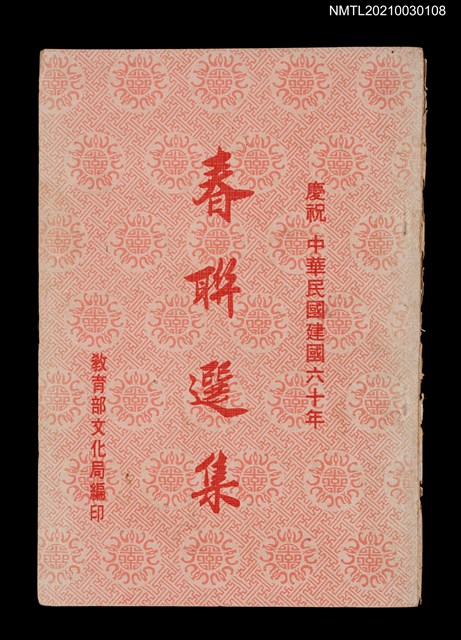 NMTL20210030108
慶祝 中華民國建國六十年
春聯選集
教育部文化局編印